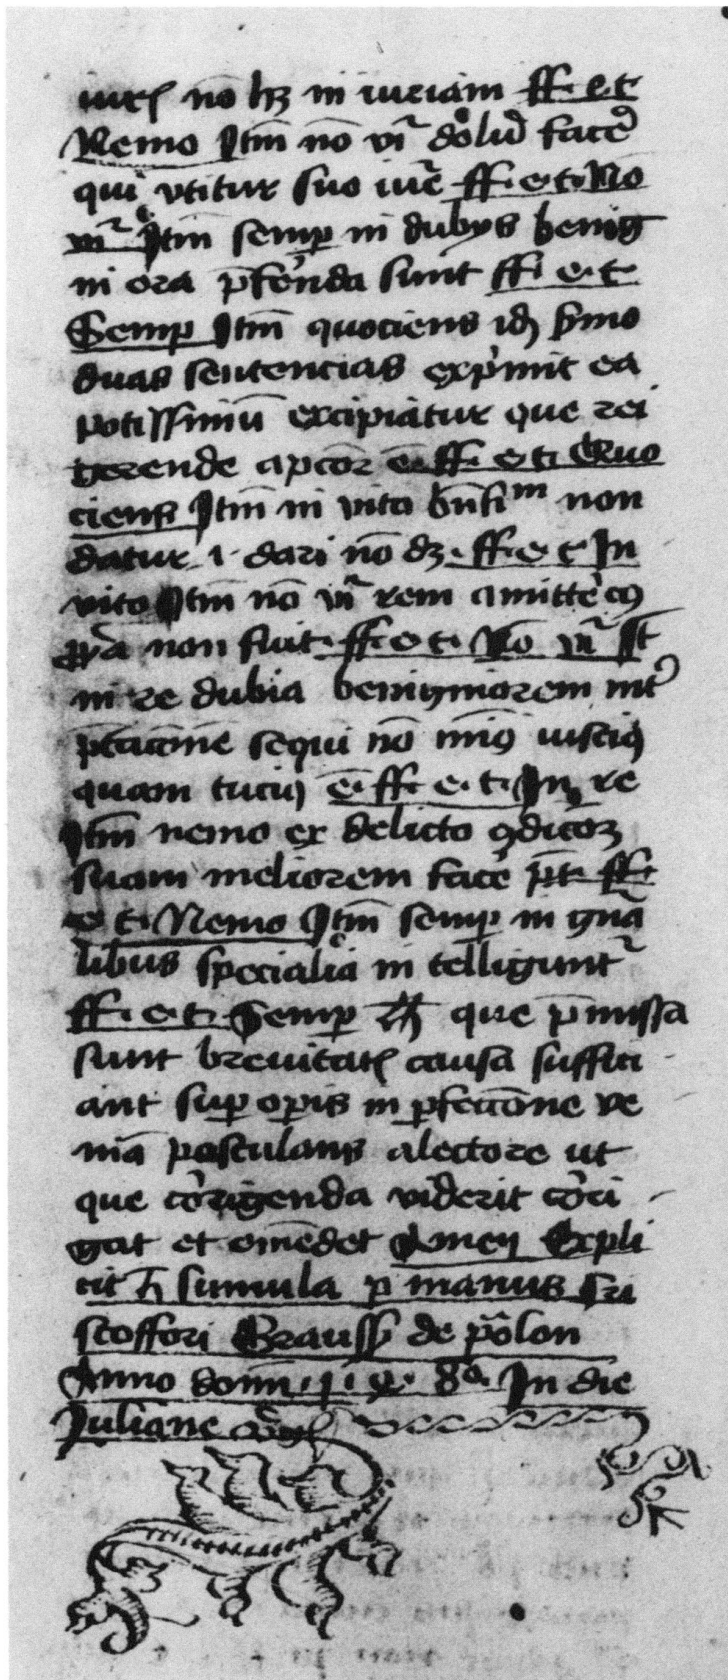 iur̄ nō hꝫ in iuriam ff. e. t
Nemo Itm̄ nō vr̄ dolū facē
qui vtitur suo iuē ff. e. t. No
vr̄ Itm̄ semꝑ in dubys benig
ni ora p̄ferenda sunt ff. e. t
Semꝑ Itm̄ quociens idē sermo
duas sentencias exp̄mit ea
potissimū excipiatur que rei
gerende apcōr ē. ff. e. t. Quo
ciens Itm̄ in vito bn̄fim non
datur .i. dari nō dꝫ. ff. e. t In
vito Itm̄ nō vr̄ rem amittē cꝰ
ꝓp̄a non fuit. ff. e. t. No vr̄ It
in re dubia benigniorem intᵉ
p̄tacōne sequi nō minꝰ iusciꝰ
quam tuciꝰ ē. ff. e. t. In re
Itm̄ nemo ex delicto ꝯdicōꝫ
suam meliorem facē pt̄. ff.
e t. Nemo Itm̄ semꝑ in gn̄a
libus specialia in telligunt᷑
ff. e. t. Semꝑ que p̄missa
sunt breuitat̄ causa suffici
ant suꝑ opis in ꝑfectōne ve
niā postulans a lectore ut
que corrigenda viderit cori
gat et emēdet Amen Expli
cit h̄ summula ꝑ manus cri
stoffori Grauss de polon
Anno domī In die
Iuliane vgīs